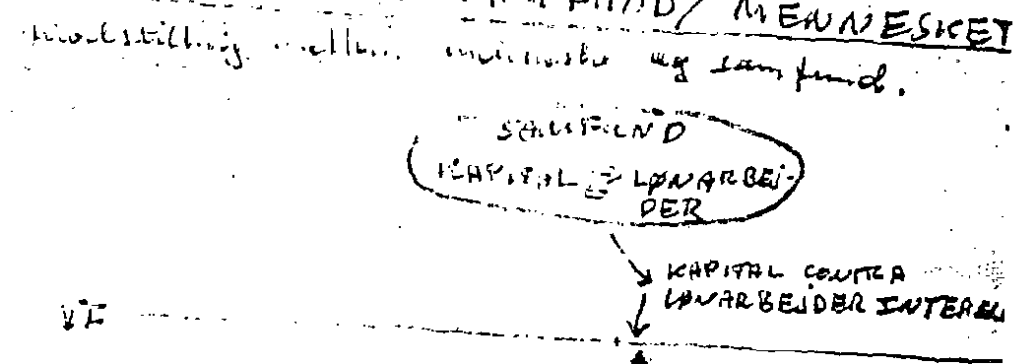 MENNESKET
modstilling mellem menneske og samfund.
SAMFUND
KAPITAL ⇄ LØNARBEJ-
DER
KAPITAL CONTRA
LØNARBEJDER INTERES